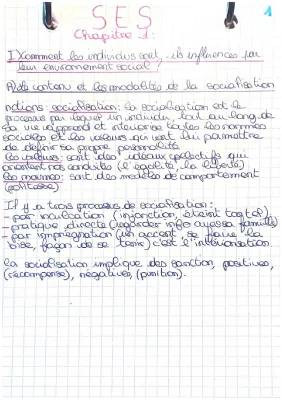 SES
1
Chapitre 1:
I) Comment les individus sont-ils influencés par
leur environnement social
A) Le contenu et les modalités de la socialisation
notions: socialisation: la socialisation est le
processus par lequel un individu, tout au long de
sa vie apprend et intériorise les normes
et les valeurs qui vont lui permettre
de définir sa propre personnalité
les valeurs: sont des idéaux collectifs qui
orientent nos conduites (l'égalité, la liberté)
les normes: sont des modèles de comportement
(politesse)
Il y a trois processus de socialisation:
- par inculcation (injonction,
- pratique directe (regarder info avec sa famille)
- par imprégnation (un accent, se faire la
bise, façon de se tenir) c'est l'intériorisation
la socialisation implique des sanction, positives,
(récompense), négatives, (punition).